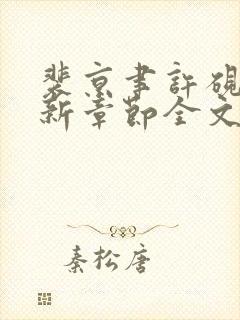 裴京聿許硯
新章節全文
秦松唐